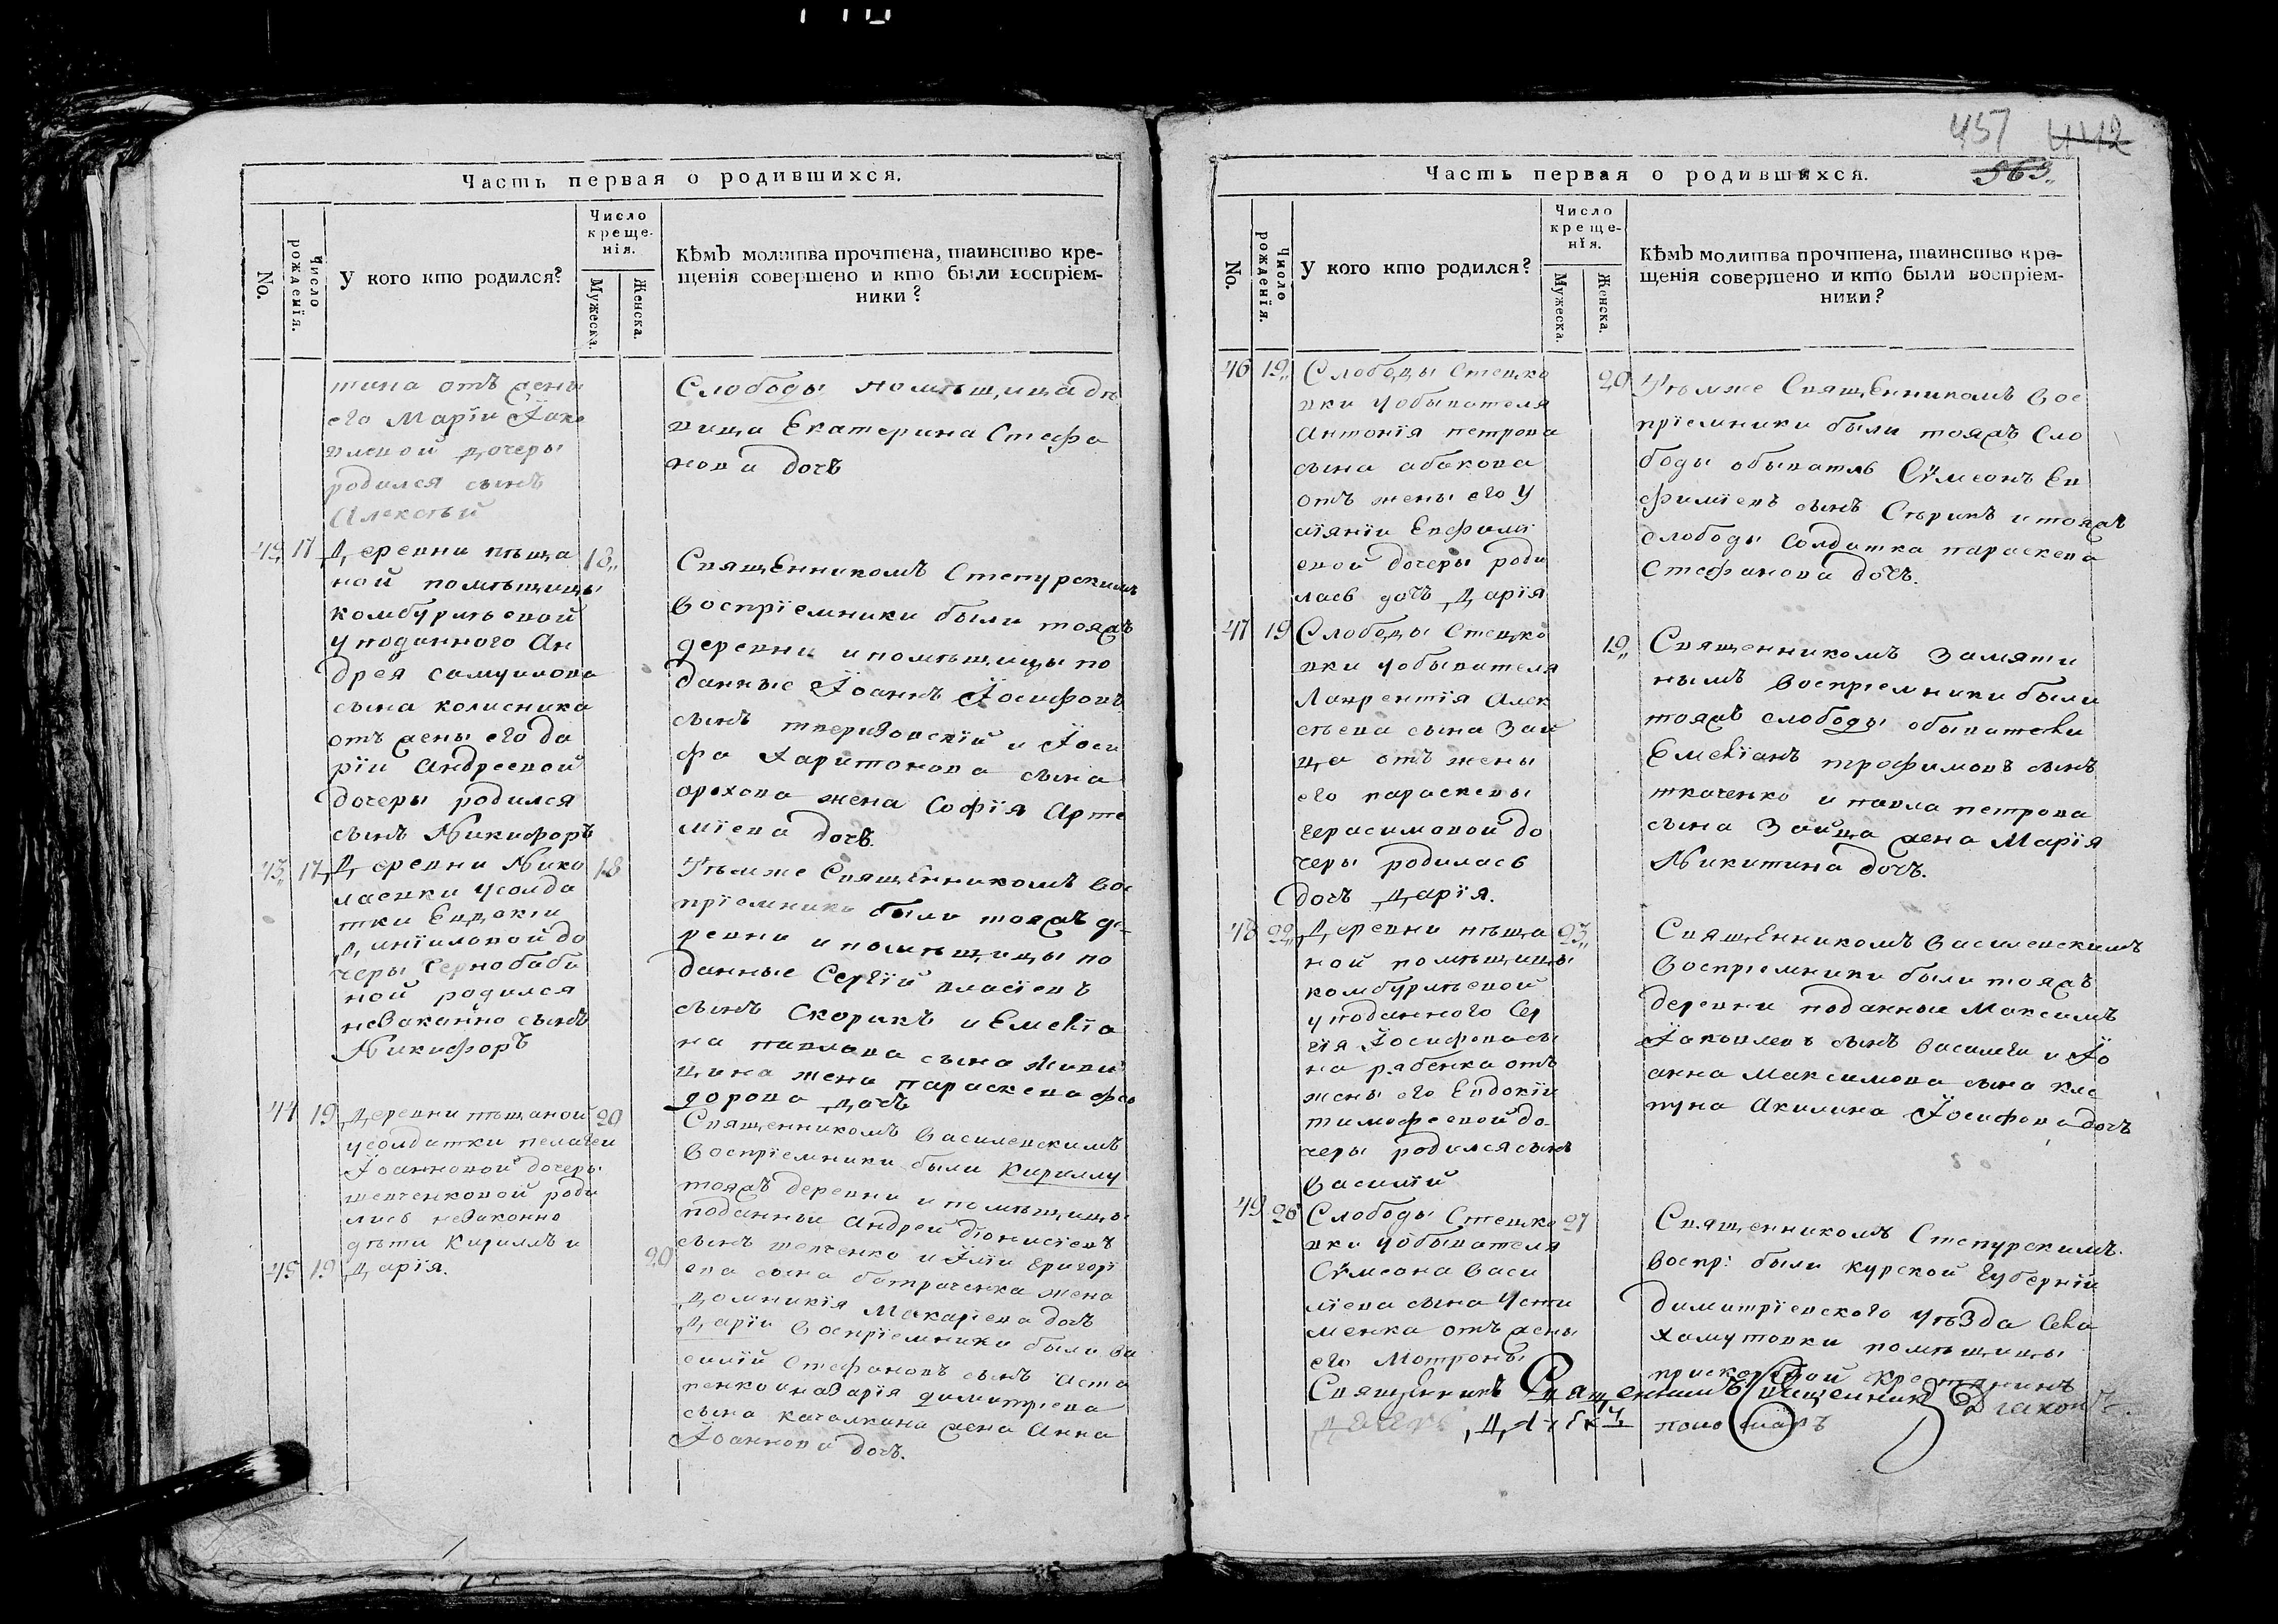 Часть первая о родившихся.
No.
Число рожденія.
У кого кто родился?
Число
креще-
нія.
Мужеска.
Женска.
Кѣмъ молитва прочтена, таинство кре-
щенія совершено и кто были воспріем-
ники?
тина отъ жены
его Маріи Іако
влевой дочеры
родился сынъ
Алексѣй
Слободы помѣщица
вица Екатерина Стефа
нова дочъ
42 17 Деревни пѣща 18
ной помѣщицы
комбурлѣевой
у поданного Ан
дрея самуилова
сына колисника
отъ жены его да
ріи Андреевой
дочеры родился
сынъ Никифоръ
Священникомъ Степурскимъ
воспріемники были тояжъ
деревни и помѣщицы по
данные Іоаннъ Іосифовъ
сынъ и Іоси
фа Харитонова сына
орехова жена Софія Арте
міева дочъ.
43 17 Деревни Нико 18
лаевки усолда
тки Евдокіи
Даніиловой до
черы Чернобаби
ной родился
незаконно сынъ
Никифоръ
Тѣмже Священникомъ вос
пріемники были тояжъ де-
ревни и помѣщицы по
данные Сергій власіевъ
сынъ Скорикъ и Емелїа
на павлова сына
жена параскева фео
дорова дочъ
44 19 Деревни пѣщаной 20
усолдатки пелагеи
Іоанновой дочеры
шевченковой роди
лись незаконно
дѣти Кириллъ и
45 19 Дарія. 20
Священникомъ василевскимъ
воспріемники были Кириллу
тояжъ деревни и помѣщицы
поданные Андрей діонисіевъ
сынъ шевченко и Іліи Григорі
ева сына батраченка жена
Домникія Макаріева дочъ
Даріи воспріемники были ва
силій Стефановъ сынъ Аста
пенко иназарія димитріева
сына качалкина жена Анна
Іоаннова дочъ.
457 442
563
Часть первая о родившихся.
No.
Число рожденія.
У кого кто родился?
Число
креще-
нія.
Мужеска.
Женска.
Кѣмъ молитва прочтена, таинство кре-
щенія совершено и кто были воспріем-
ники?
46 19 Слободы Стецко 20
вки уобывателя
Антонія петрова
сына абакова
отъ жены его У
ліяніи Евфимі
евой дочеры роди
лась дочъ Дарія
Тѣмже Священникомъ вос
пріемники были тояжъ Сло
боды обыватлъ Сѵмеонъ Ев
фиміевъ сынъ Сѣрикъ и тояжъ
слободы солдатка параскева
Стефанова дочъ.
47 19 Слободы Стецко 19
вки уобывателя
Лаврентія Алек
сѣева сына Зай
ца отъ жены
его параскевы
герасимовой до
черы родилась
дочъ Дарія.
Священникомъ Замяти
нымъ воспріемники были
тояжъ слободы обыватели
Емеліанъ трофимовъ сынъ
ткаченко и павла петрова
сына Зайца жена Марія
Никитина дочъ.
48 22 Деревни пѣща 23
ной помѣщицы
комбурлѣевой
у поданного Сер
гія Іосифова сы
на рябенка отъ
жены его Евдокіи
тимофеевой до-
черы родился сынъ
василій
Священникомъ василевскимъ
воспріемники были тояжъ
деревни поданные Максимъ
Іаковлевъ сынъ василега и Іо
анна Максимова сына кле
пуна Акилина Іосифова дочъ
49 26 Слободы Стецко 27
вки уобывателя
Сѵмеона Васи
ліева сына Усти
менка отъ жены
его Мотроны
Священникомъ Степурскимъ.
воспр: были курской губерніи
димитріевского уѣзда села
хамутовки помѣщицы
крестянинъ
Священникъ Священникъ Священникъ Діаконъ
Дячекъ пономаръ